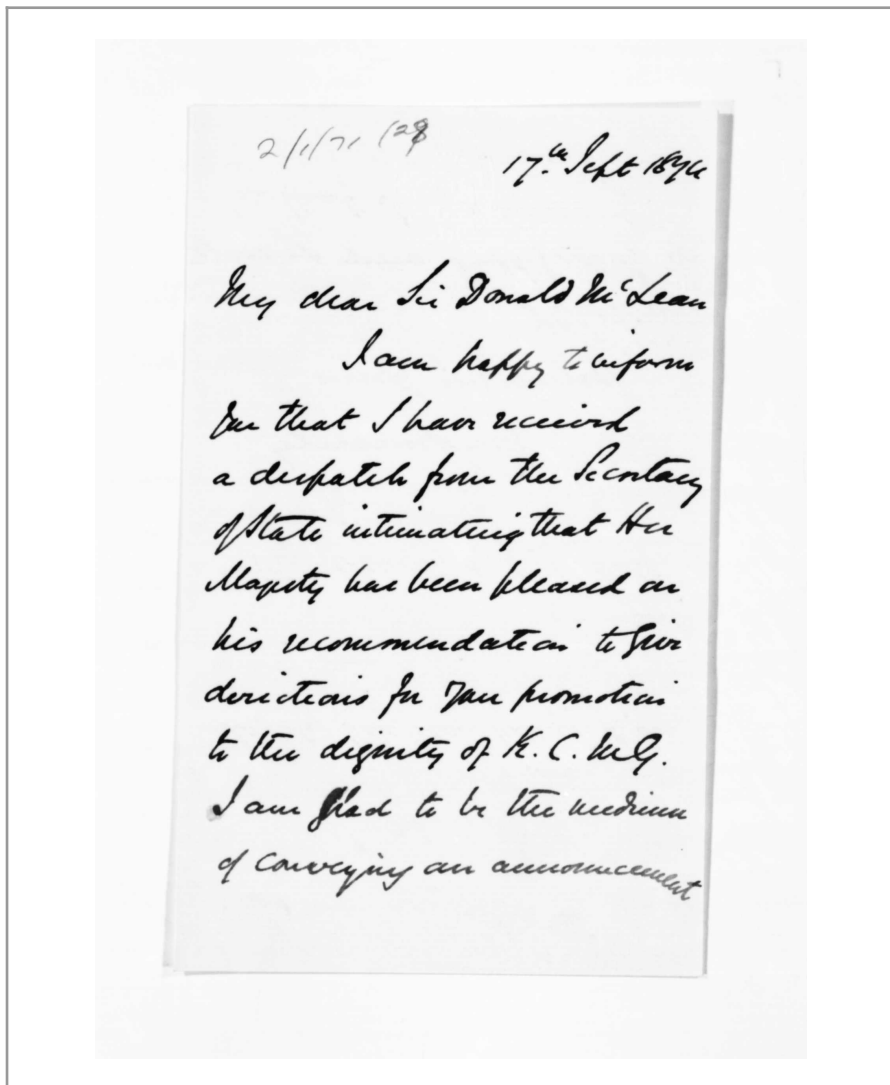 2/1/71 (28
17th Sept 1874
My dear Sir Donald McLean
I am happy to inform
you that I have received
a despatch from the Secretary
of State intimating that Her
Majesty has been pleased on
his recommendation to give
directions for your promotion
to the dignity of K. C. M.G.
I am glad to be the medium
of conveying an announcement